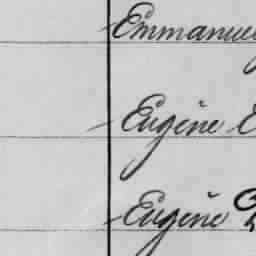 Emmanuel
Eugène
Eugène